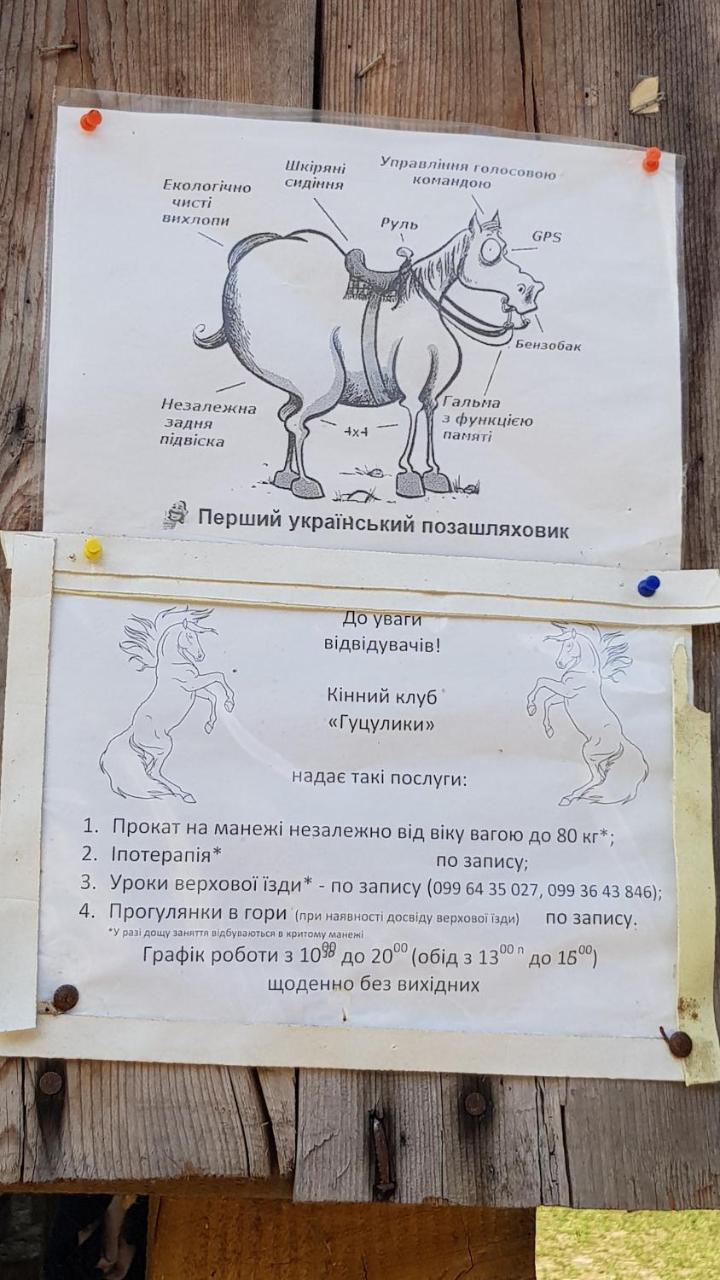 Шкіряні
сидіння
Управління голосовою
командою
Екологічно
чисті
вихлопи
Руль
GPS
Бензобак
Незалежна
задня
підвіска
4х4
Гальма
з функцією
памяті
Перший український позашляховик
До уваги
відвідувачів!
Кінний клуб
«Гуцулики»
надає такі послуги:
1. Прокат на манежі незалежно від віку вагою до 80 кг*;
2. Іпотерапія* по запису;
3. Уроки верхової їзди* - по запису (099 64 35 027, 099 36 43 846);
4. Прогулянки в гори (при наявності досвіду верхової їзди) по запису.
*У разі дощу заняття відбуваються в критому манежі
Графік роботи з 10 до 20⁰⁰ (обід з 13⁰⁰ ⁿ до 15⁰⁰)
щоденно без вихідних